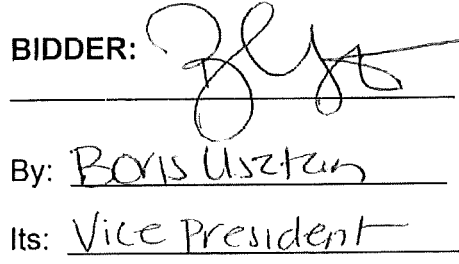 BIDDER:
By: Boris Usztan
Its: Vice President